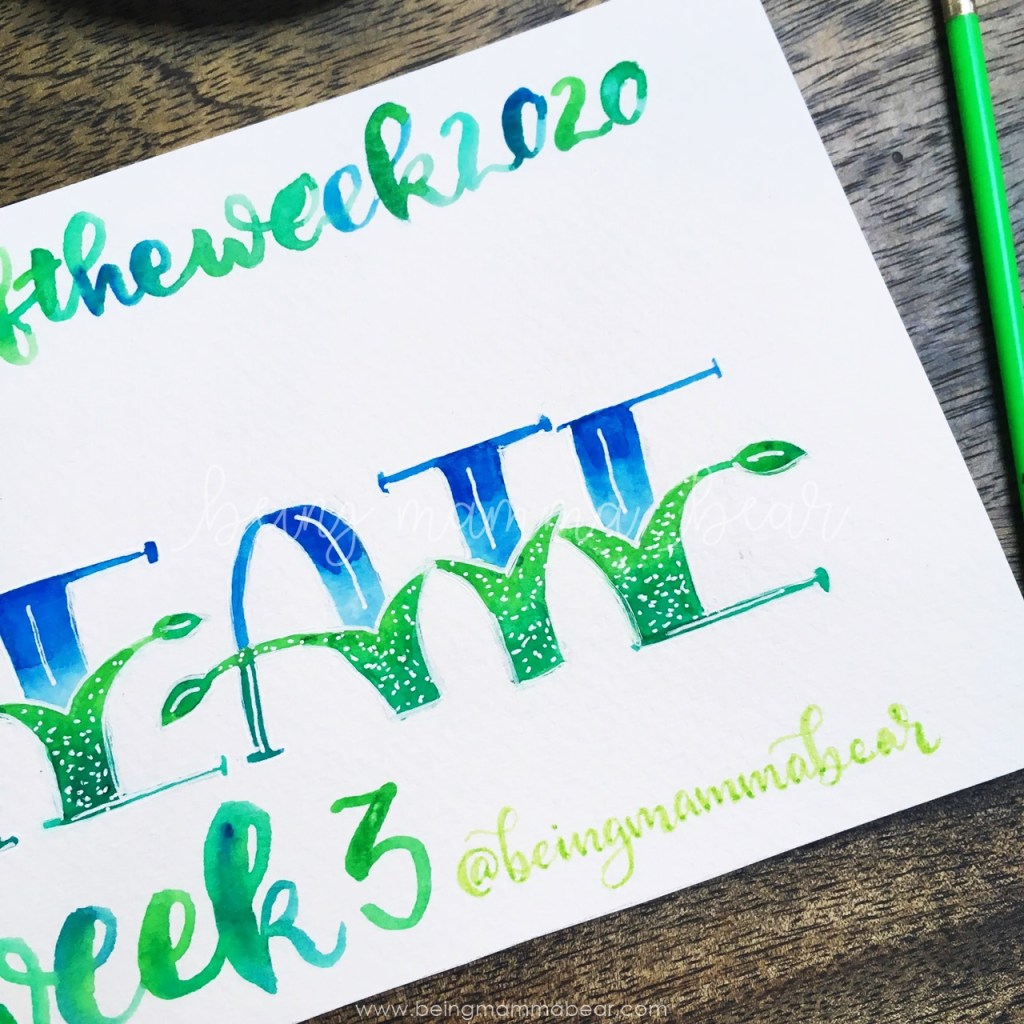 ftheweek2020
being mamma bear
week 3
@beingmammabear
www.beingmammabear.com